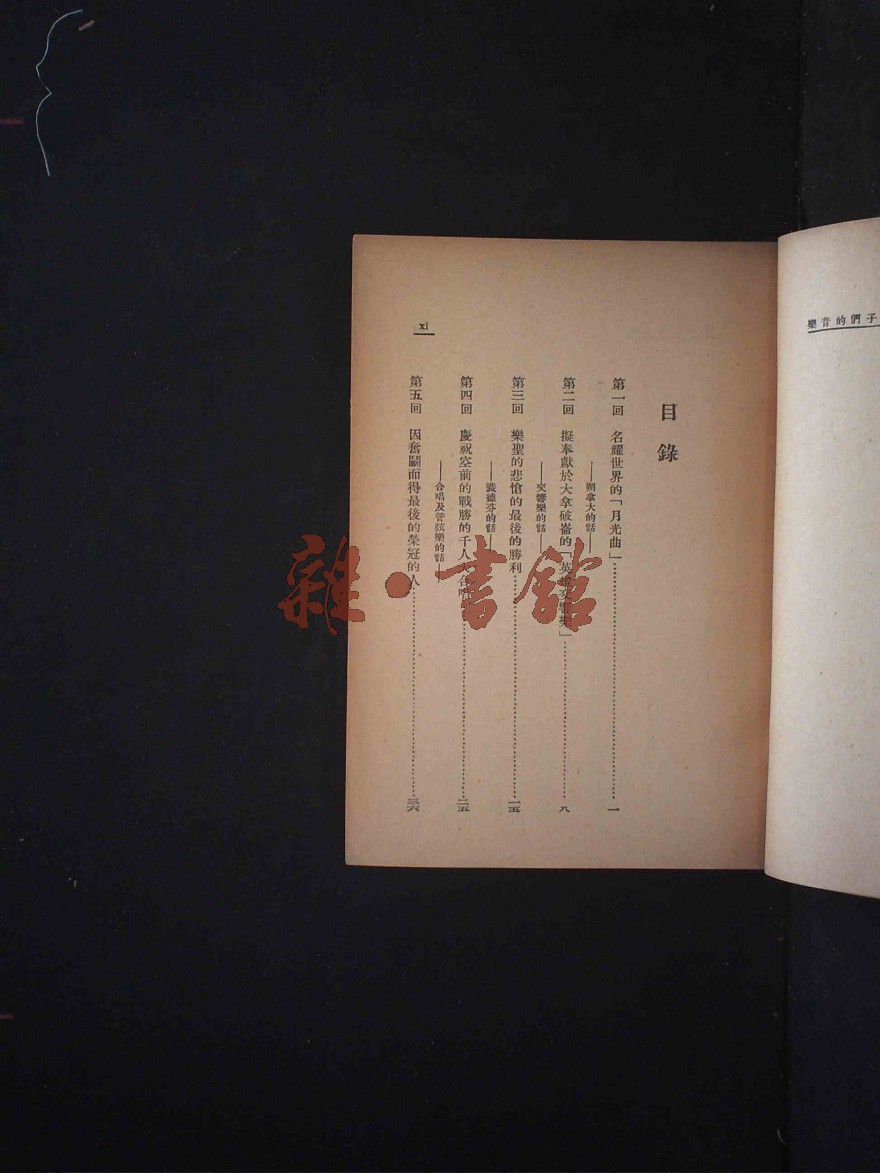 樂音的們子
目錄
第一回　名耀世界的「月光曲」⋯⋯一
——朔拿大的話——
第二回　擬奉獻於大拿破崙的「英雄交響樂」⋯⋯九
——交響樂的話——
第三回　樂聖的悲愴的最後的勝利⋯⋯一五
——裴德芬的話——
第四回　慶祝空前的戰勝的千人大合唱⋯⋯二五
——合唱及管弦樂的話——
第五回　因奮鬭而得最後的榮冠的人⋯⋯三六
xi
雜·書館